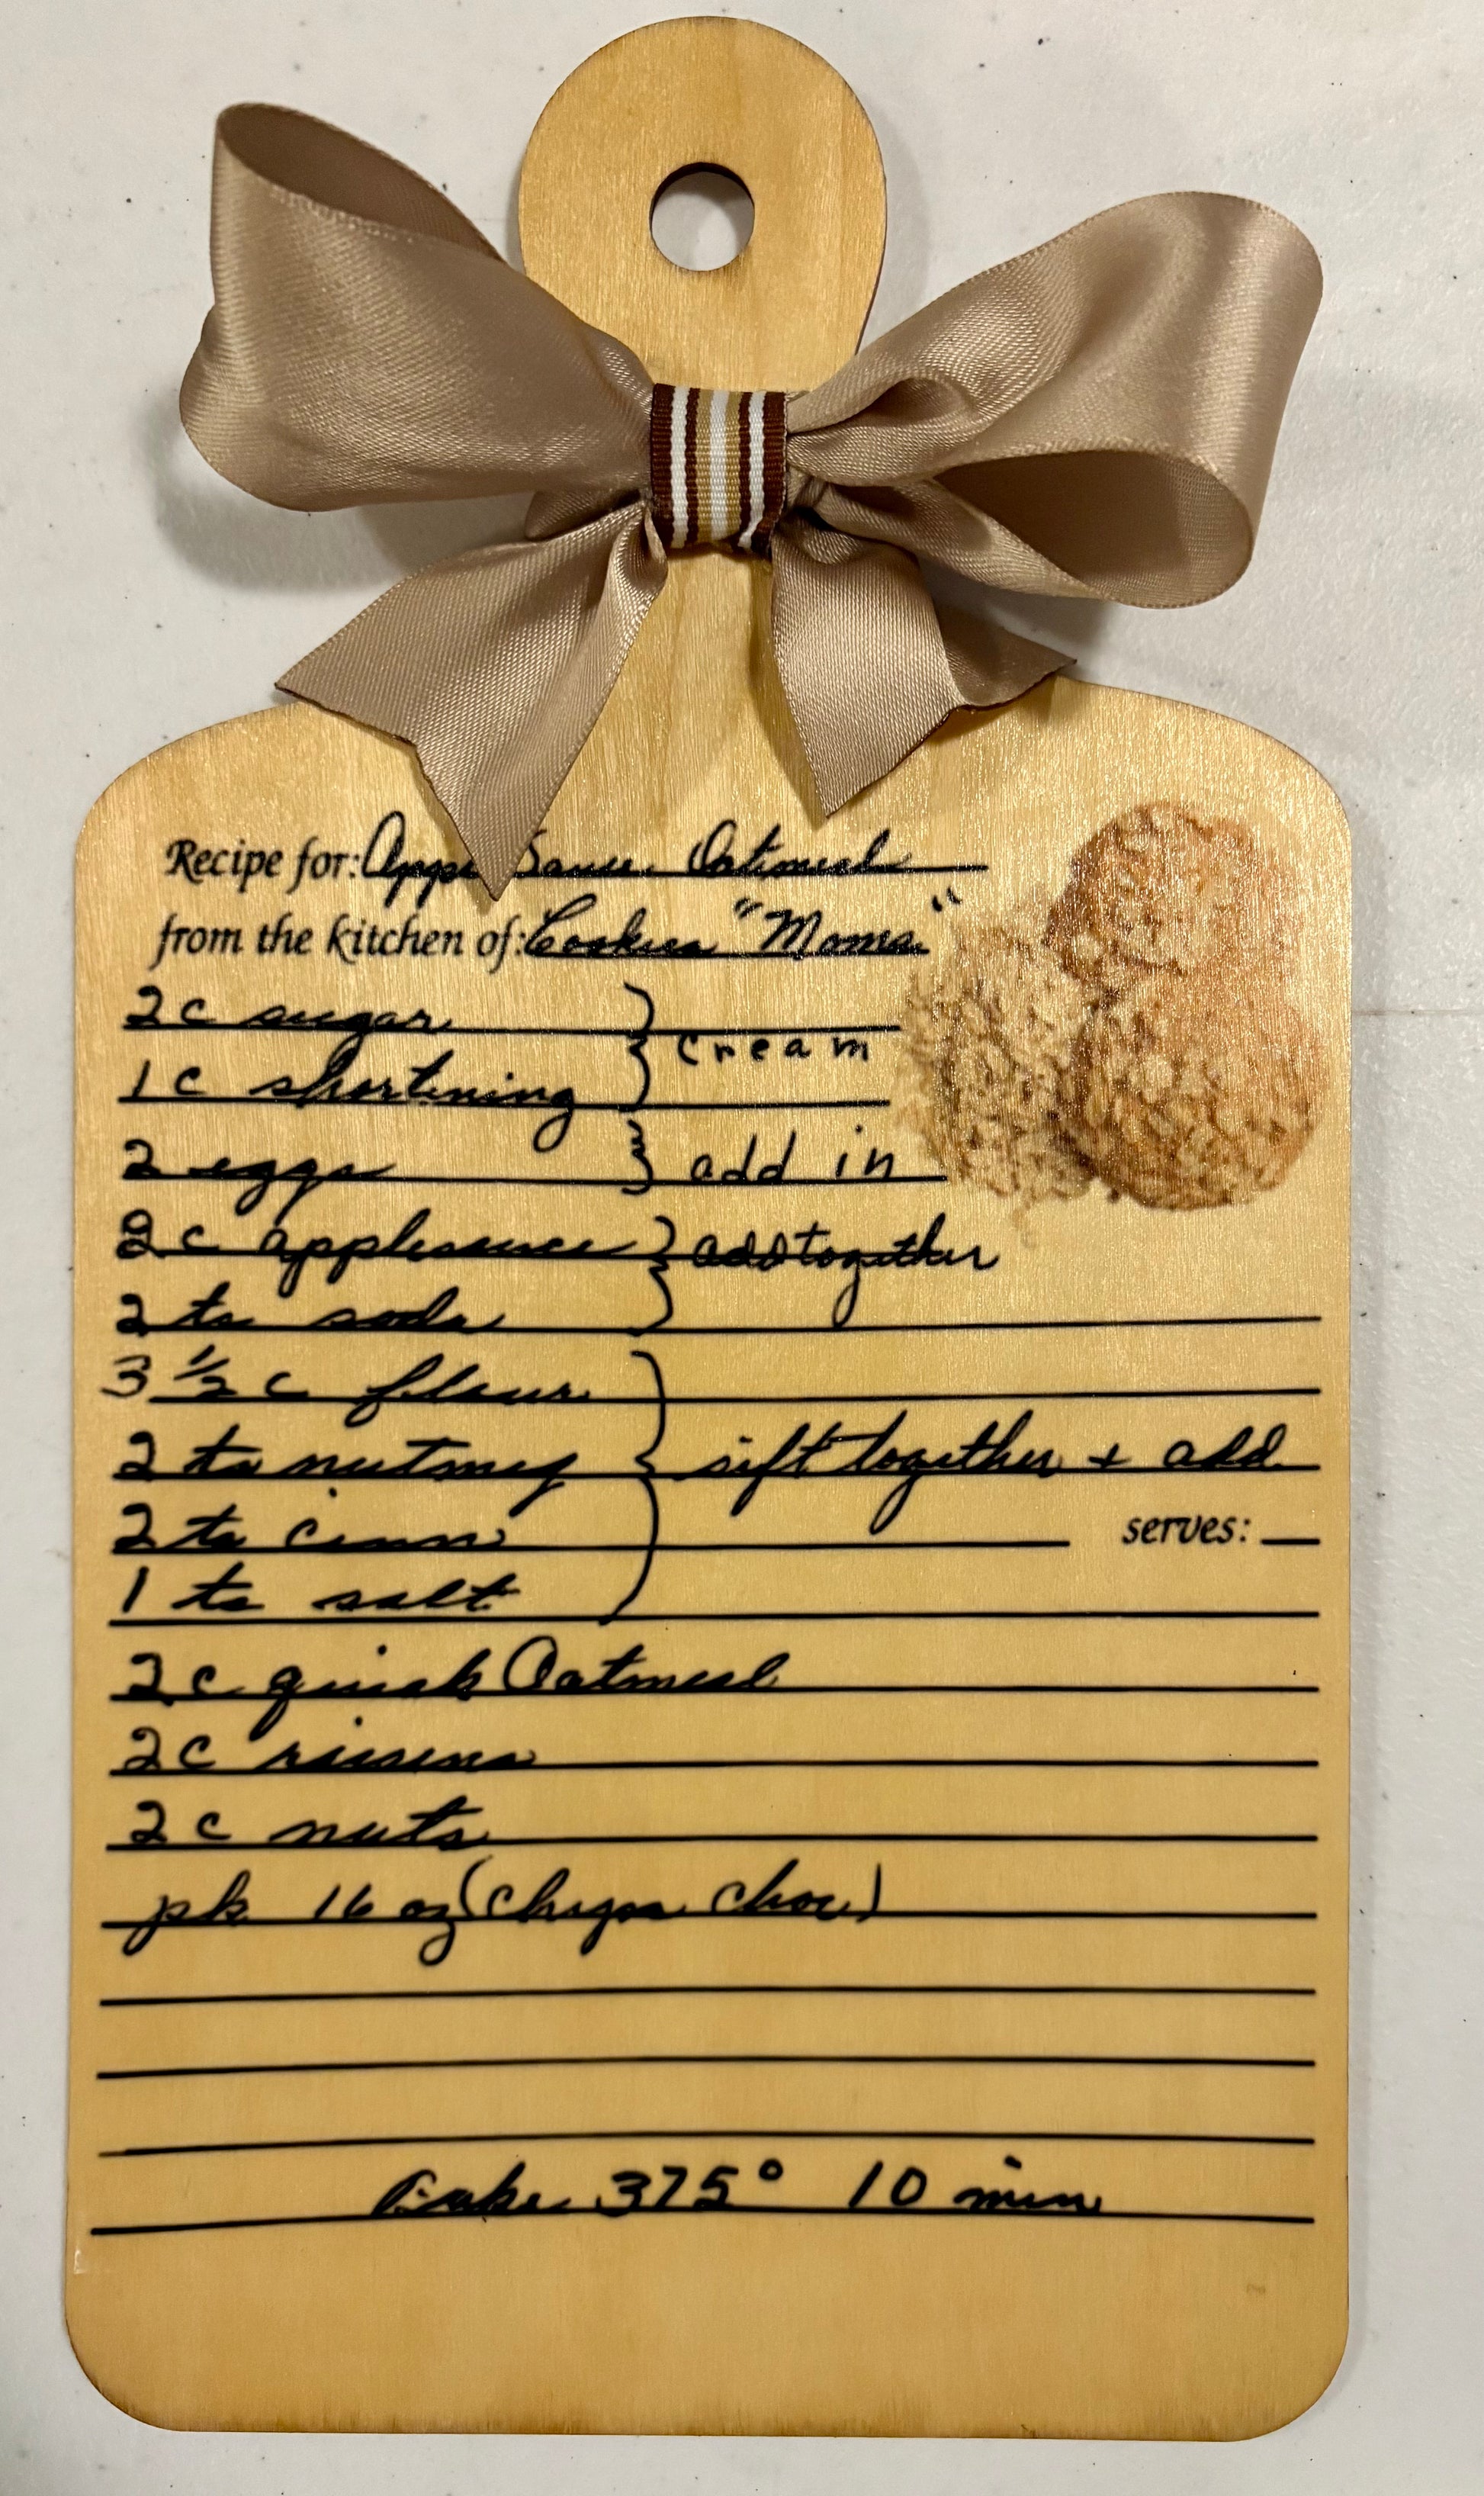 Recipe for: Apple Sauce Oatmeal
from the kitchen of: Cookies "Moma"
2 c sugar
1 c shortening } cream
2 eggs } add in
2 c applesauce } add together
2 ts soda
3 1/2 c flour
2 ts nutmeg } sift together + add
2 ts cinn serves:
1 ts salt
2 c quick Oatmeal
2 c raisins
2 c nuts
pk 16 oz (chips choc)
Bake 375° 10 min